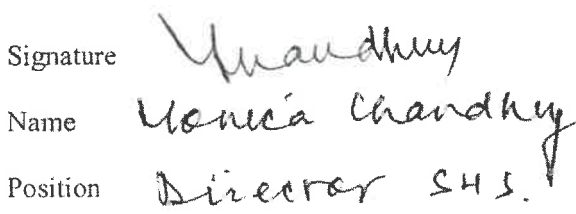 Signature
Name Monica Chaudhry
Position Director SHS.